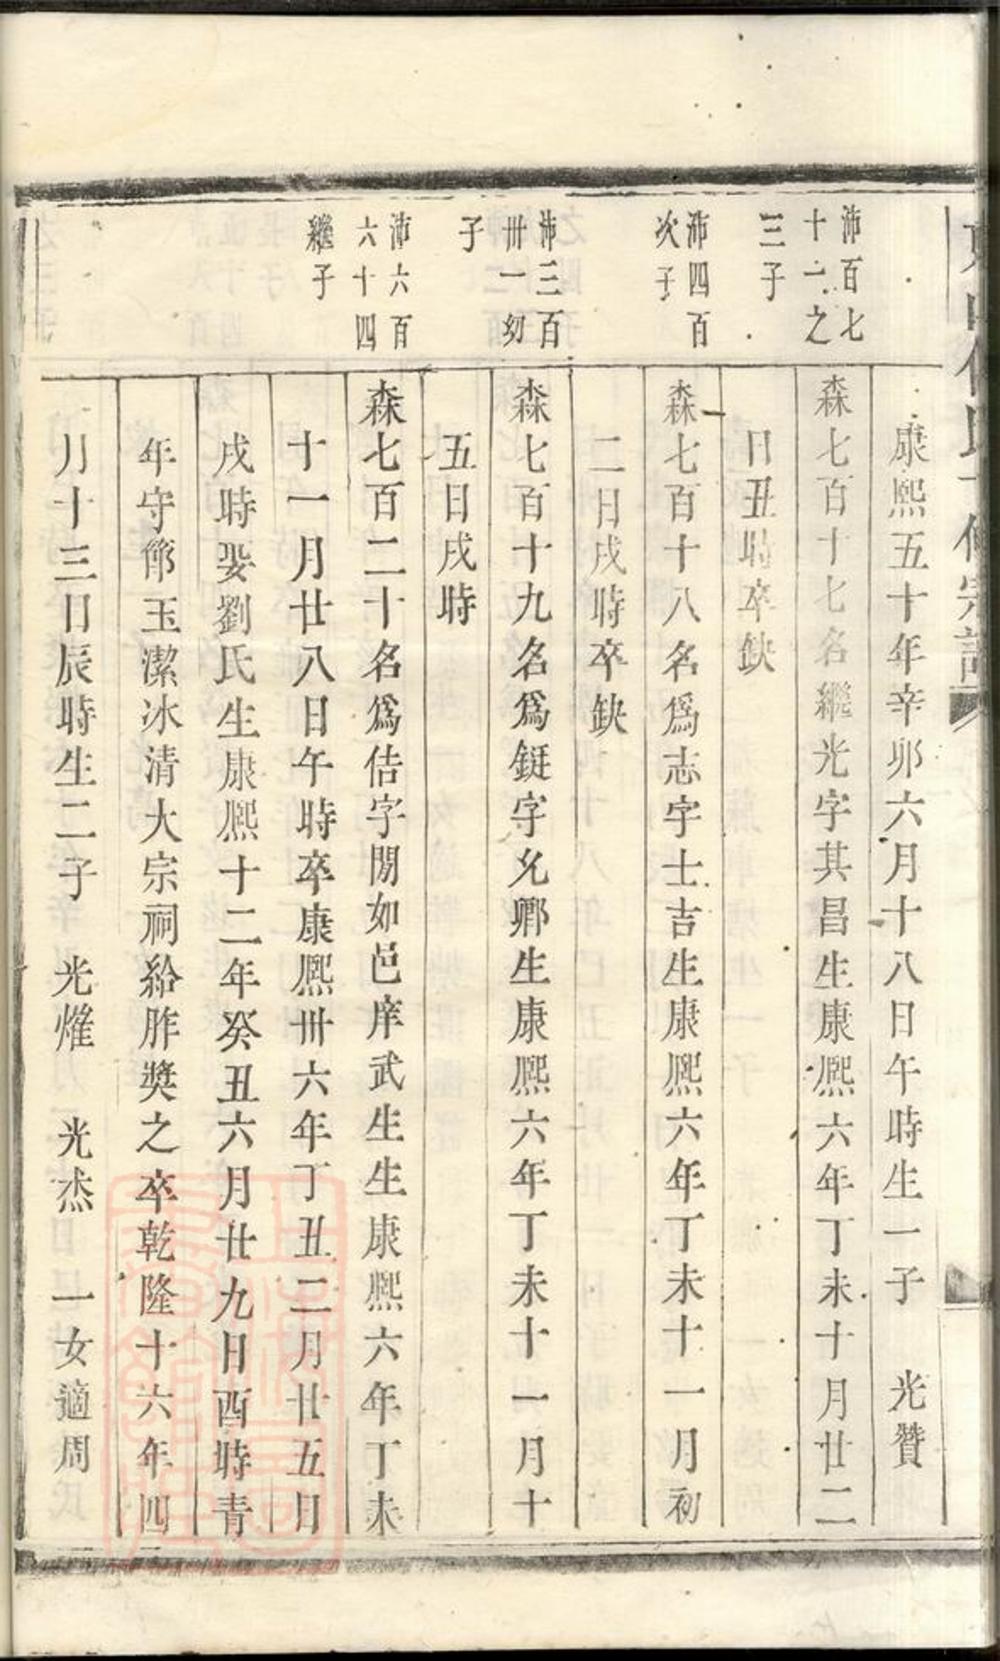 康熙五十年辛卯六月十八日午時生一子　光贊
沛百七
十一之
三子
森七百十七名繼光字其昌生康熙六年丁未十月廿二
日丑時卒缺
沛四百
次子
森七百十八名爲志字士吉生康熙六年丁未十一月初
二日戌時卒缺
沛三百
卅一幼
子
森七百十九名爲鋌字允卿生康熙六年丁未十一月十
五日戌時
沛六百
六十四
繼子
森七百二十名爲佶字閒如邑庠武生生康熙六年丁未
十一月廿八日午時卒康熙卅六年丁丑二月廿五日
戌時娶劉氏生康熙十二年癸丑六月廿九日酉時青
年守節玉潔冰清大宗祠給胙奬之卒乾隆十六年四
月十三日辰時生二子　光㷮　光焘　一女適周氏